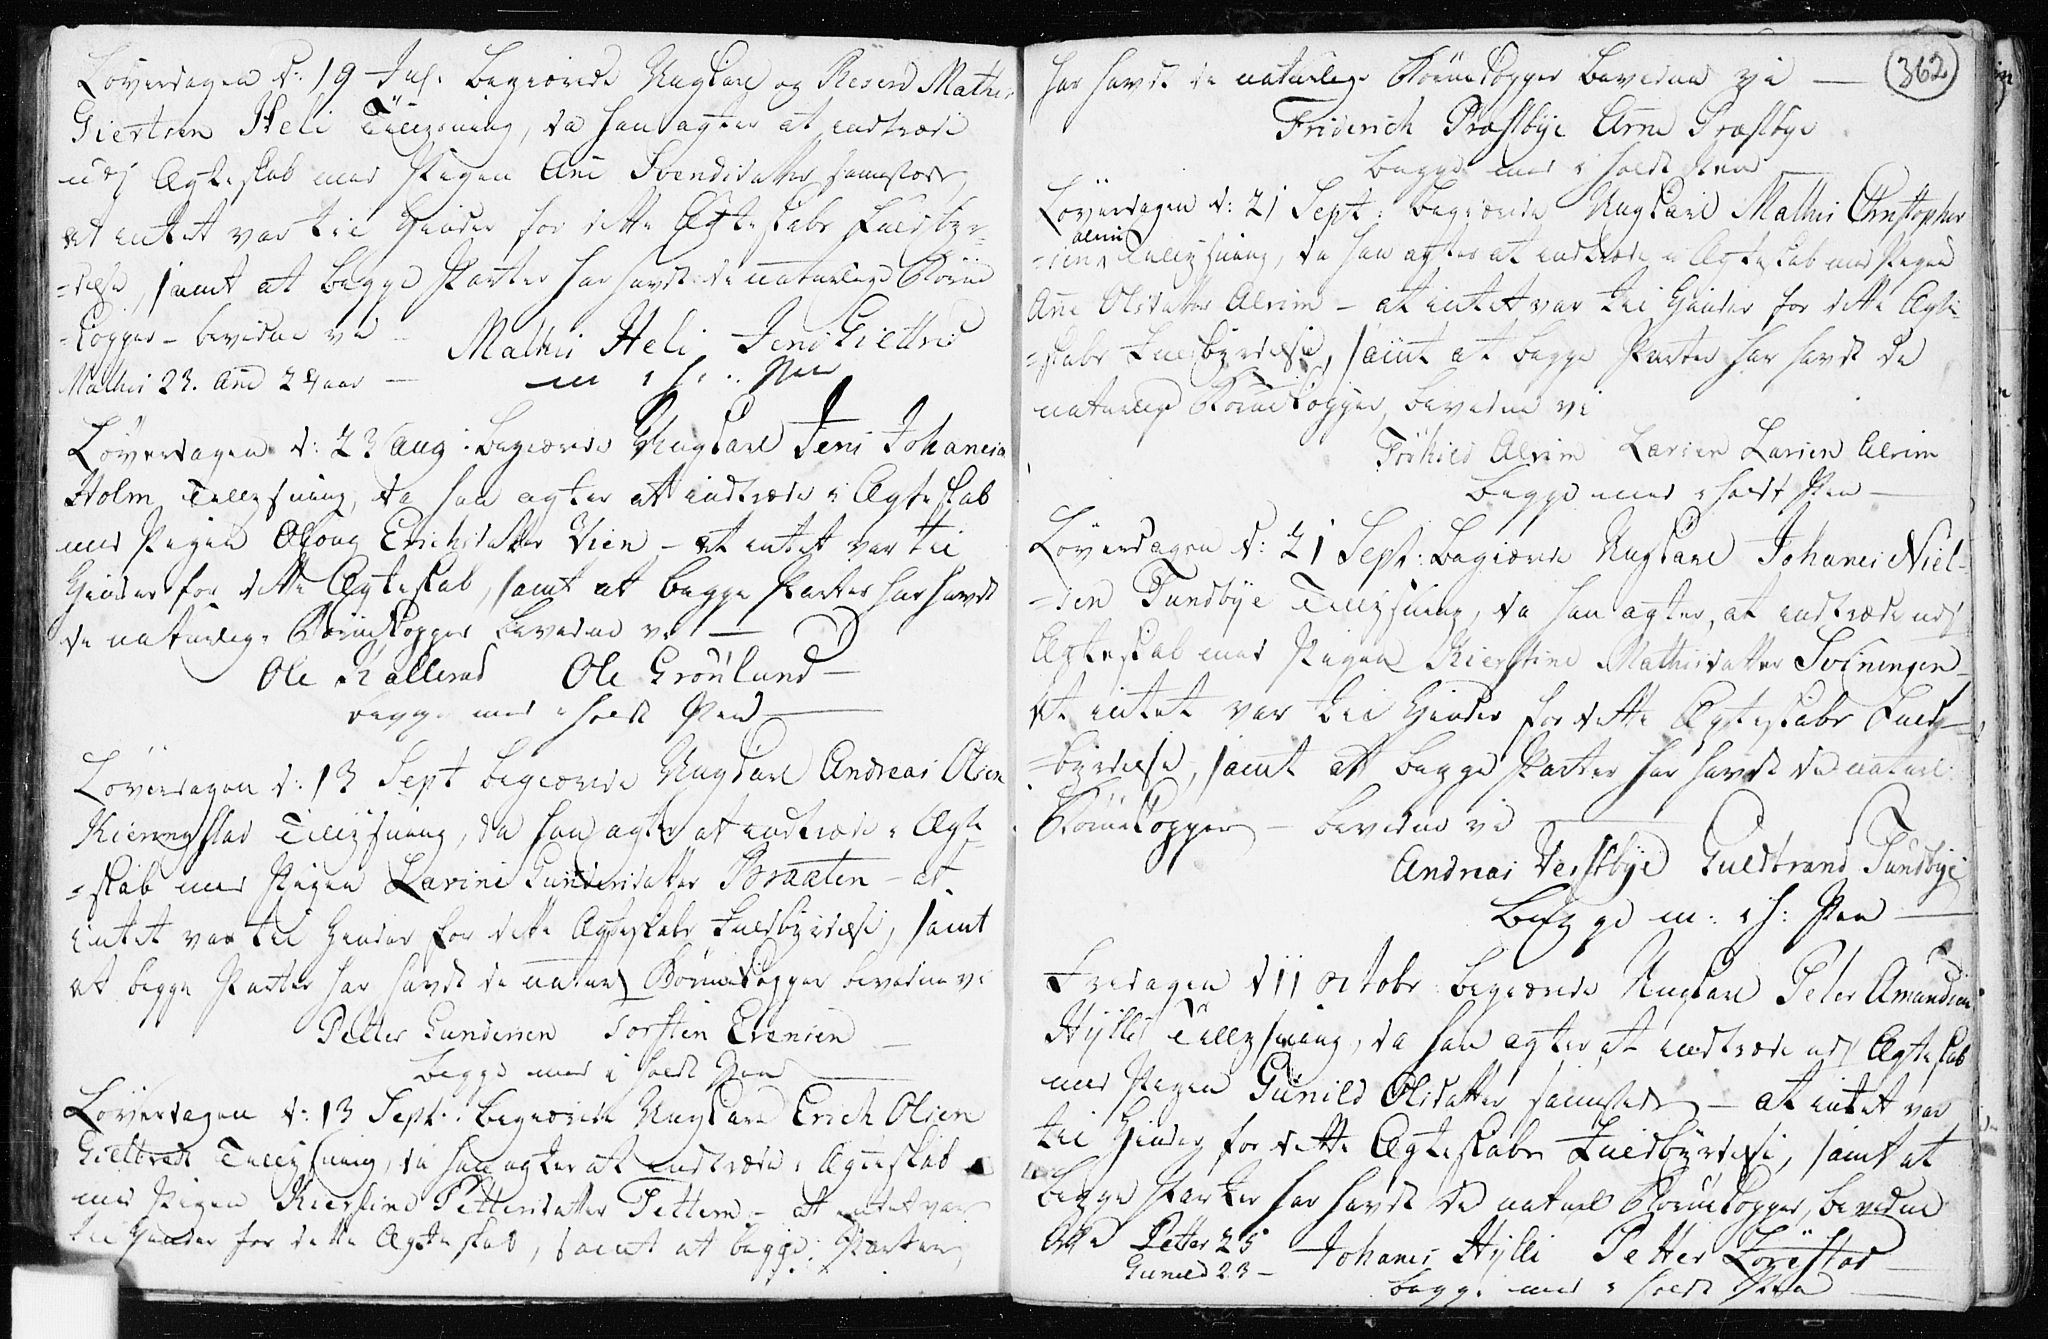 Løverdagen d: 19 Jul: begierede Ungkarl og Reserv Mathis
Giertsen Heli Tillysning, da han agter at indtræde
udj Ægteskab med Pigen Ane Svendsdatter sammesteds
at intet var til Hinder for dette Ægteskabs Fuldbyr-
=delse, samt at begge Parter har havdt de naturlige Børne
=kopper - bevidne vi -
Mathis Heli Jens Giellrud
Mathis 23. Ane 24 aar -
m i h: Pen
Løverdagen d: 23 Aug: begierede Ungkarl Jens Johanesen
Holm Tillysning, da han agter at indtræde i Ægteskab
med Pigen Erichsdatter Vien - at intet var til
Hinder for dette Ægteskab, samt at begge Parter har havdt
de naturlige Børnekopper bevidne vi -
Ole Kallerud Ole Grønlund -
begge med i holdt Pen
Løverdagen d: 13 Sept begierede Ungkarl Andreas Olsen
Kiennerstad Tillysning, da han agter at indtræde i Ægte
=skab med Pigen Karine Gundersdatter Braaten - at
intet var til Hinder for dette Ægteskabs Fuldbyrdelse, samt
at begge Parter har havdt de naturl Børnekopper bevidne vi
Petter Gundersen Torsten Evensen
begge med i holdt Pen
Løverdagen d: 13 Sept: begierede Ungkarl Erich Olsen
Tillysning, da han agter at indtræde i Ægteskab
med Pigen Kierstine Pettersdatter Tettern - at intet var
til Hinder for dette Ægteskab, samt at begge Parter
362
har havdt de naturlige Børnekopper bevidne vi -
Friderich Præstbye Arne Præstbye
begge med i holdt Pen
Løverdagen d: 21 Sept: begierede Ungkarl Mathis Christopher
Alrim
=sen Tillysning, da han agter at indtræde i Ægteskab med Pigen
Ane Olsdatter Alrim - at intet var til Hinder for dette Ægte-
=skabs Fuldbyrdelse, samt at begge Parter har havdt de
naturlige Børnekopper, bevidne vi
Torkild Alrim Larsen Larsen Alrim
begge med i holdt Pen -
Løverdagen d: 21 Sept: begierede Ungkarl Johanes Niel-
=sen Tundbye Tillysning, da han agter, at indtræde udj
Ægteskab med Pigen Kierstine Mathisdatter Solningen -
at intet var til Hinder for dette Ægteskabs Fuld-
=byrdelse, samt at begge Parter har havdt de naturl:
Børnekopper - bevidne vi
Andreas Verstbye Guldbrand Tundbye
begge m: i h: Pen -
Fredagen d 11 octobr begierede Ungkarl Peter Amundsen
Hylli Tillysning, da han agter, at indtræde udj Ægteskab
med Pigen Gunild Olsdatter sammesteds - at intet var
til Hinder for dette Ægteskabs Fuldbyrdelse, samt at
begge Parter har havdt de naturl Børnekopper, bevidne
Petter 25 Johanes Hylli Petter Lørestad
Gunild 23 -
begge med i holdt Pen